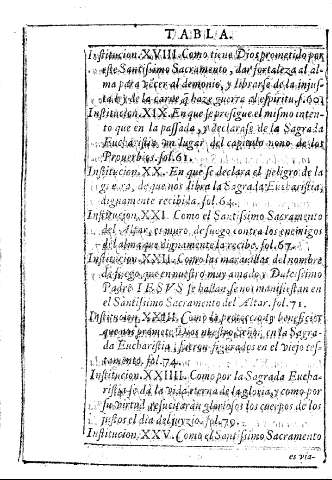 TABLA.
Institucion. XVIII. Como tiene Dios prometido por
este Santissimo Sacramento, dar fortaleza al al-
ma para vẽcer al demonio, y librarse de la injus-
ta ley de la carne q̃ haze guerra al espiritu. f.60.
Institucion. XIX. En que se prosigue el mismo inten-
to que en la passada, y declarase de la Sagrada
Eucharistia, un lugar del capitulo nono de los
Proverbios. fol.61.
Institucion. XX. En que se declara el peligro de la
de que nos libra la Sagrada Eucharistia,
dignamente recibida. fol.64.
Institucion. XXI. Como el Santissimo Sacramento
del Altar, es muro de fuego contra los enemigos
del alma que dignamente la recibe. fol.67.
Institucion. XXII. Como las maravillas del nombre
de fuego, que en nuestro muy amado y Dulcissimo
Padre IESVS se hallan, se nos manifiestan en
el Santissimo Sacramento del Altar. fol.71.
Institucion. XXIII. Como la proteccion y beneficios
que nos promete Dios en la Sagra-
da Eucharistia, fueron figurados en el viejo tes-
tamento. fol.74.
Institucion. XXIIII. Como por la Sagrada Eucha-
ristia se dà la vida eterna de la gloria, y como por
su virtud resucitaràn gloriosos los cuerpos de los
justos el dia del juyzio. fol.79.
Institucion. XXV. Como el Santissimo Sacramento
es via-